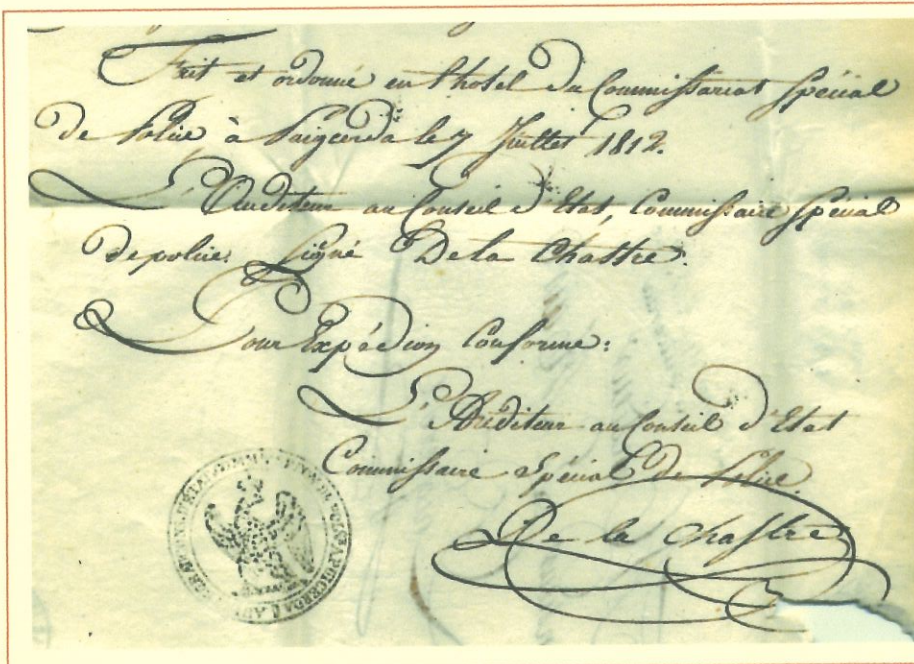 Fait et ordonné en l'hotel du Commissariat Spécial
de Police à Puigcerda le 7 Juillet 1812.
L'Auditeur au Conseil d'Etat, Commissaire Spécial
de police. Signé De la Chastre.
Pour Expédion Conforme:
L'Auditeur au Conseil d'Etat
Commissaire Spécial de Police.
De la Chastre